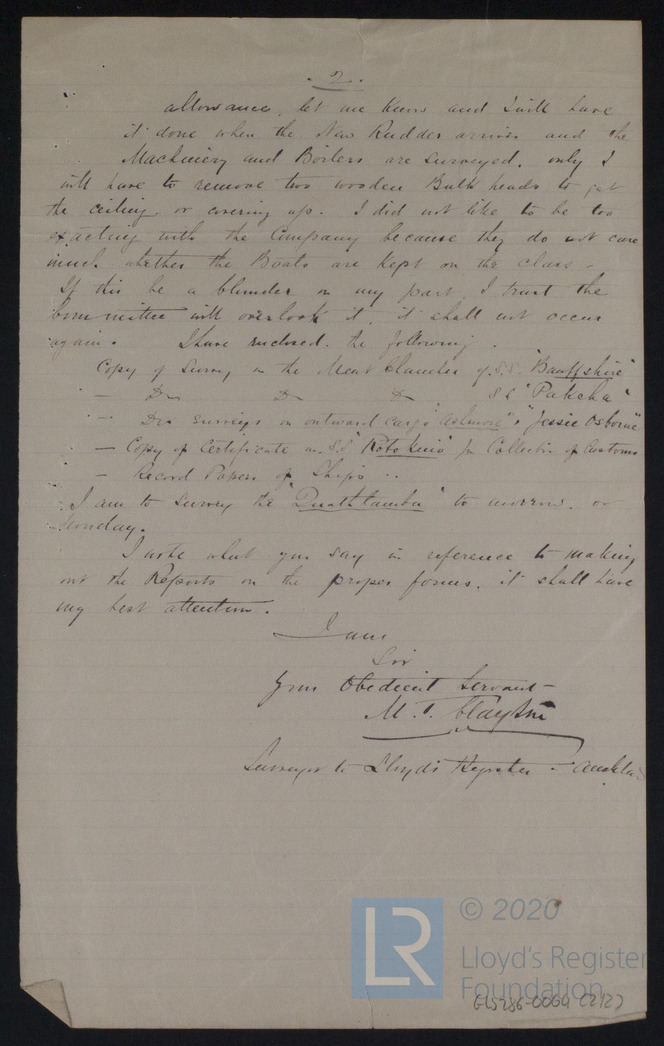 . 2 .
allowance, let me know and I will have
it done when the New Rudder arrives and the
Machinery and Boilers are surveyed. only I
will have to remove two wooden Bulk heads to get
the ceiling or covering up. I did not like to be too
exacting with the Company because they do not care
much whether the Boats are kept on the class -
If this be a blunder on my part, I trust the
Committee will overlook it, it shall not occur
again. I have enclosed the following.
Copy of Survey on the Meat Chamber of S.S. "Banffshire"
- Do Do Do SS "Pakeha"
- Do surveys on outward cargo "Ashmore" & "Jessie Osborne"
- Copy of Certificate on S.S. "Rotokino" for Collector of Customs
- Record Papers of Ships ..
I am to survey the "Quathlamba" to morrow or
Monday.
I note what you say in reference to making
out the Reports on the proper forms, it shall have
my best attention.
I am
Sir
Your Obedient Servant
M. T. Clayton
Surveyor to Lloyd's Register -
© 2020
LR
Lloyd's Register
Foundation